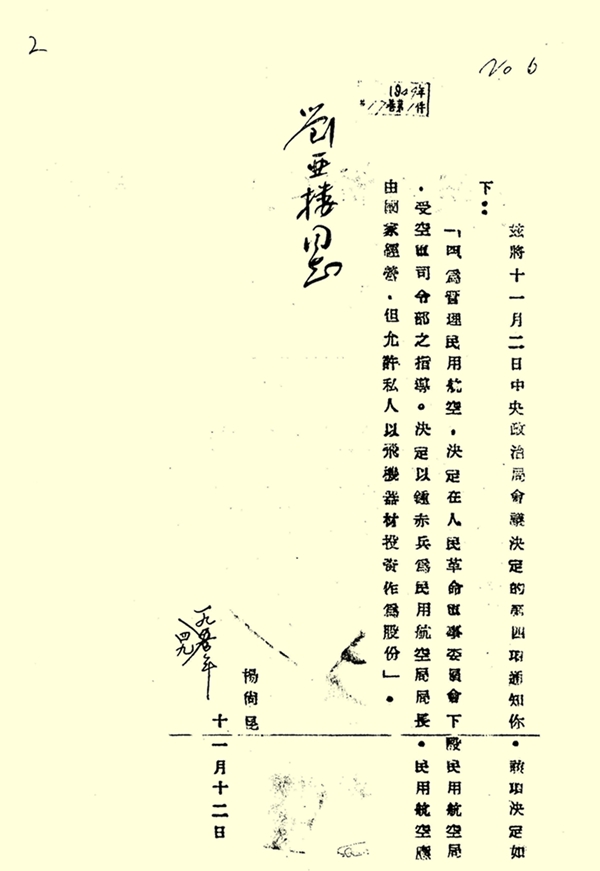 2
No 6
劉亞樓同志
茲將十一月二日中央政治局會議決定的第四項通知你・該項決定如
下：
「四爲管理民用航空・決定在人民革命軍事委員會下設民用航空局
・受空軍司令部之指導。決定以鍾赤兵爲民用航空局局長・民用航空應
由國家經營・但允許私人以飛機器材投資作爲股份」・
楊尚昆
十一月十二日